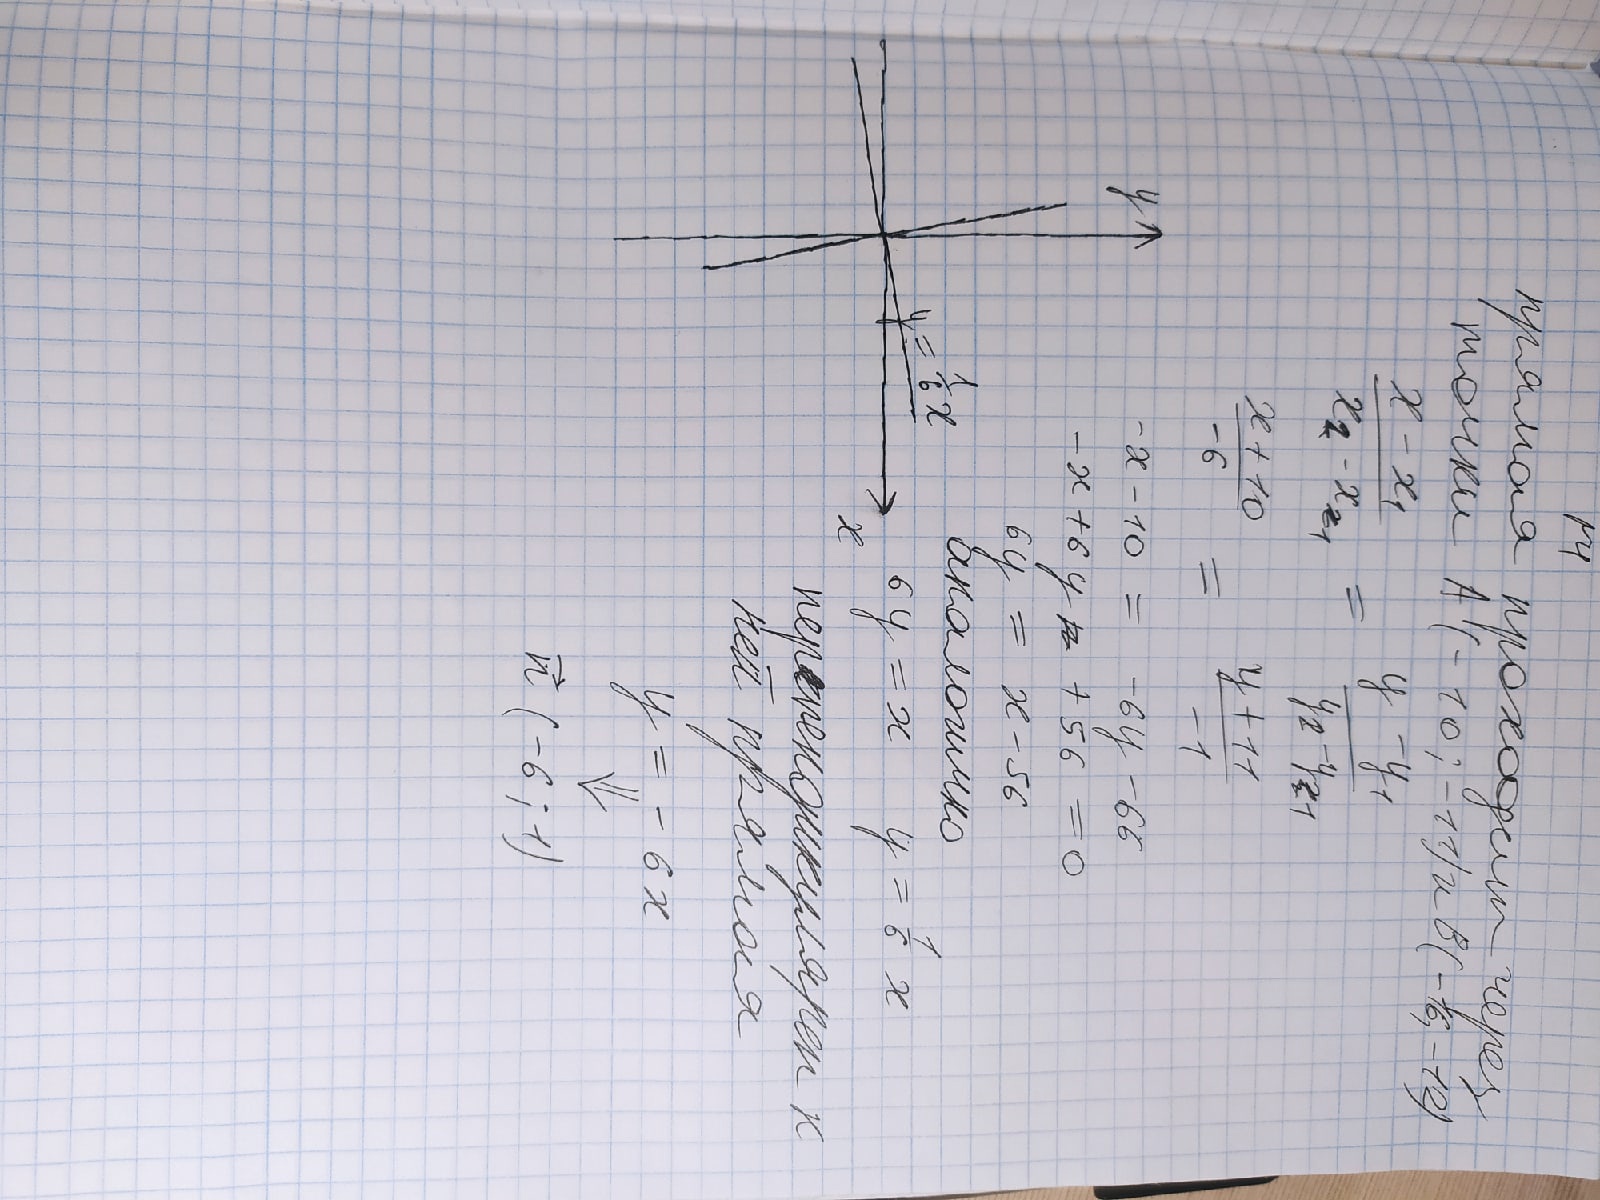 14
прямая проходит через
точки A(-10; -11) и B(-16; -12)
x - x1 / x2 - x1 = y - y1 / y2 - y1
x + 10 / -6 = y + 11 / -1
-x - 10 = -6y - 66
-x + 6y + 56 = 0
6y = x - 56
аналогично
6y = x y = 1/6 x
перпендикулярен к
ней прямая
y = -6x
⇓
n⃗ (-6; -1)
y
y = 1/6 x
x